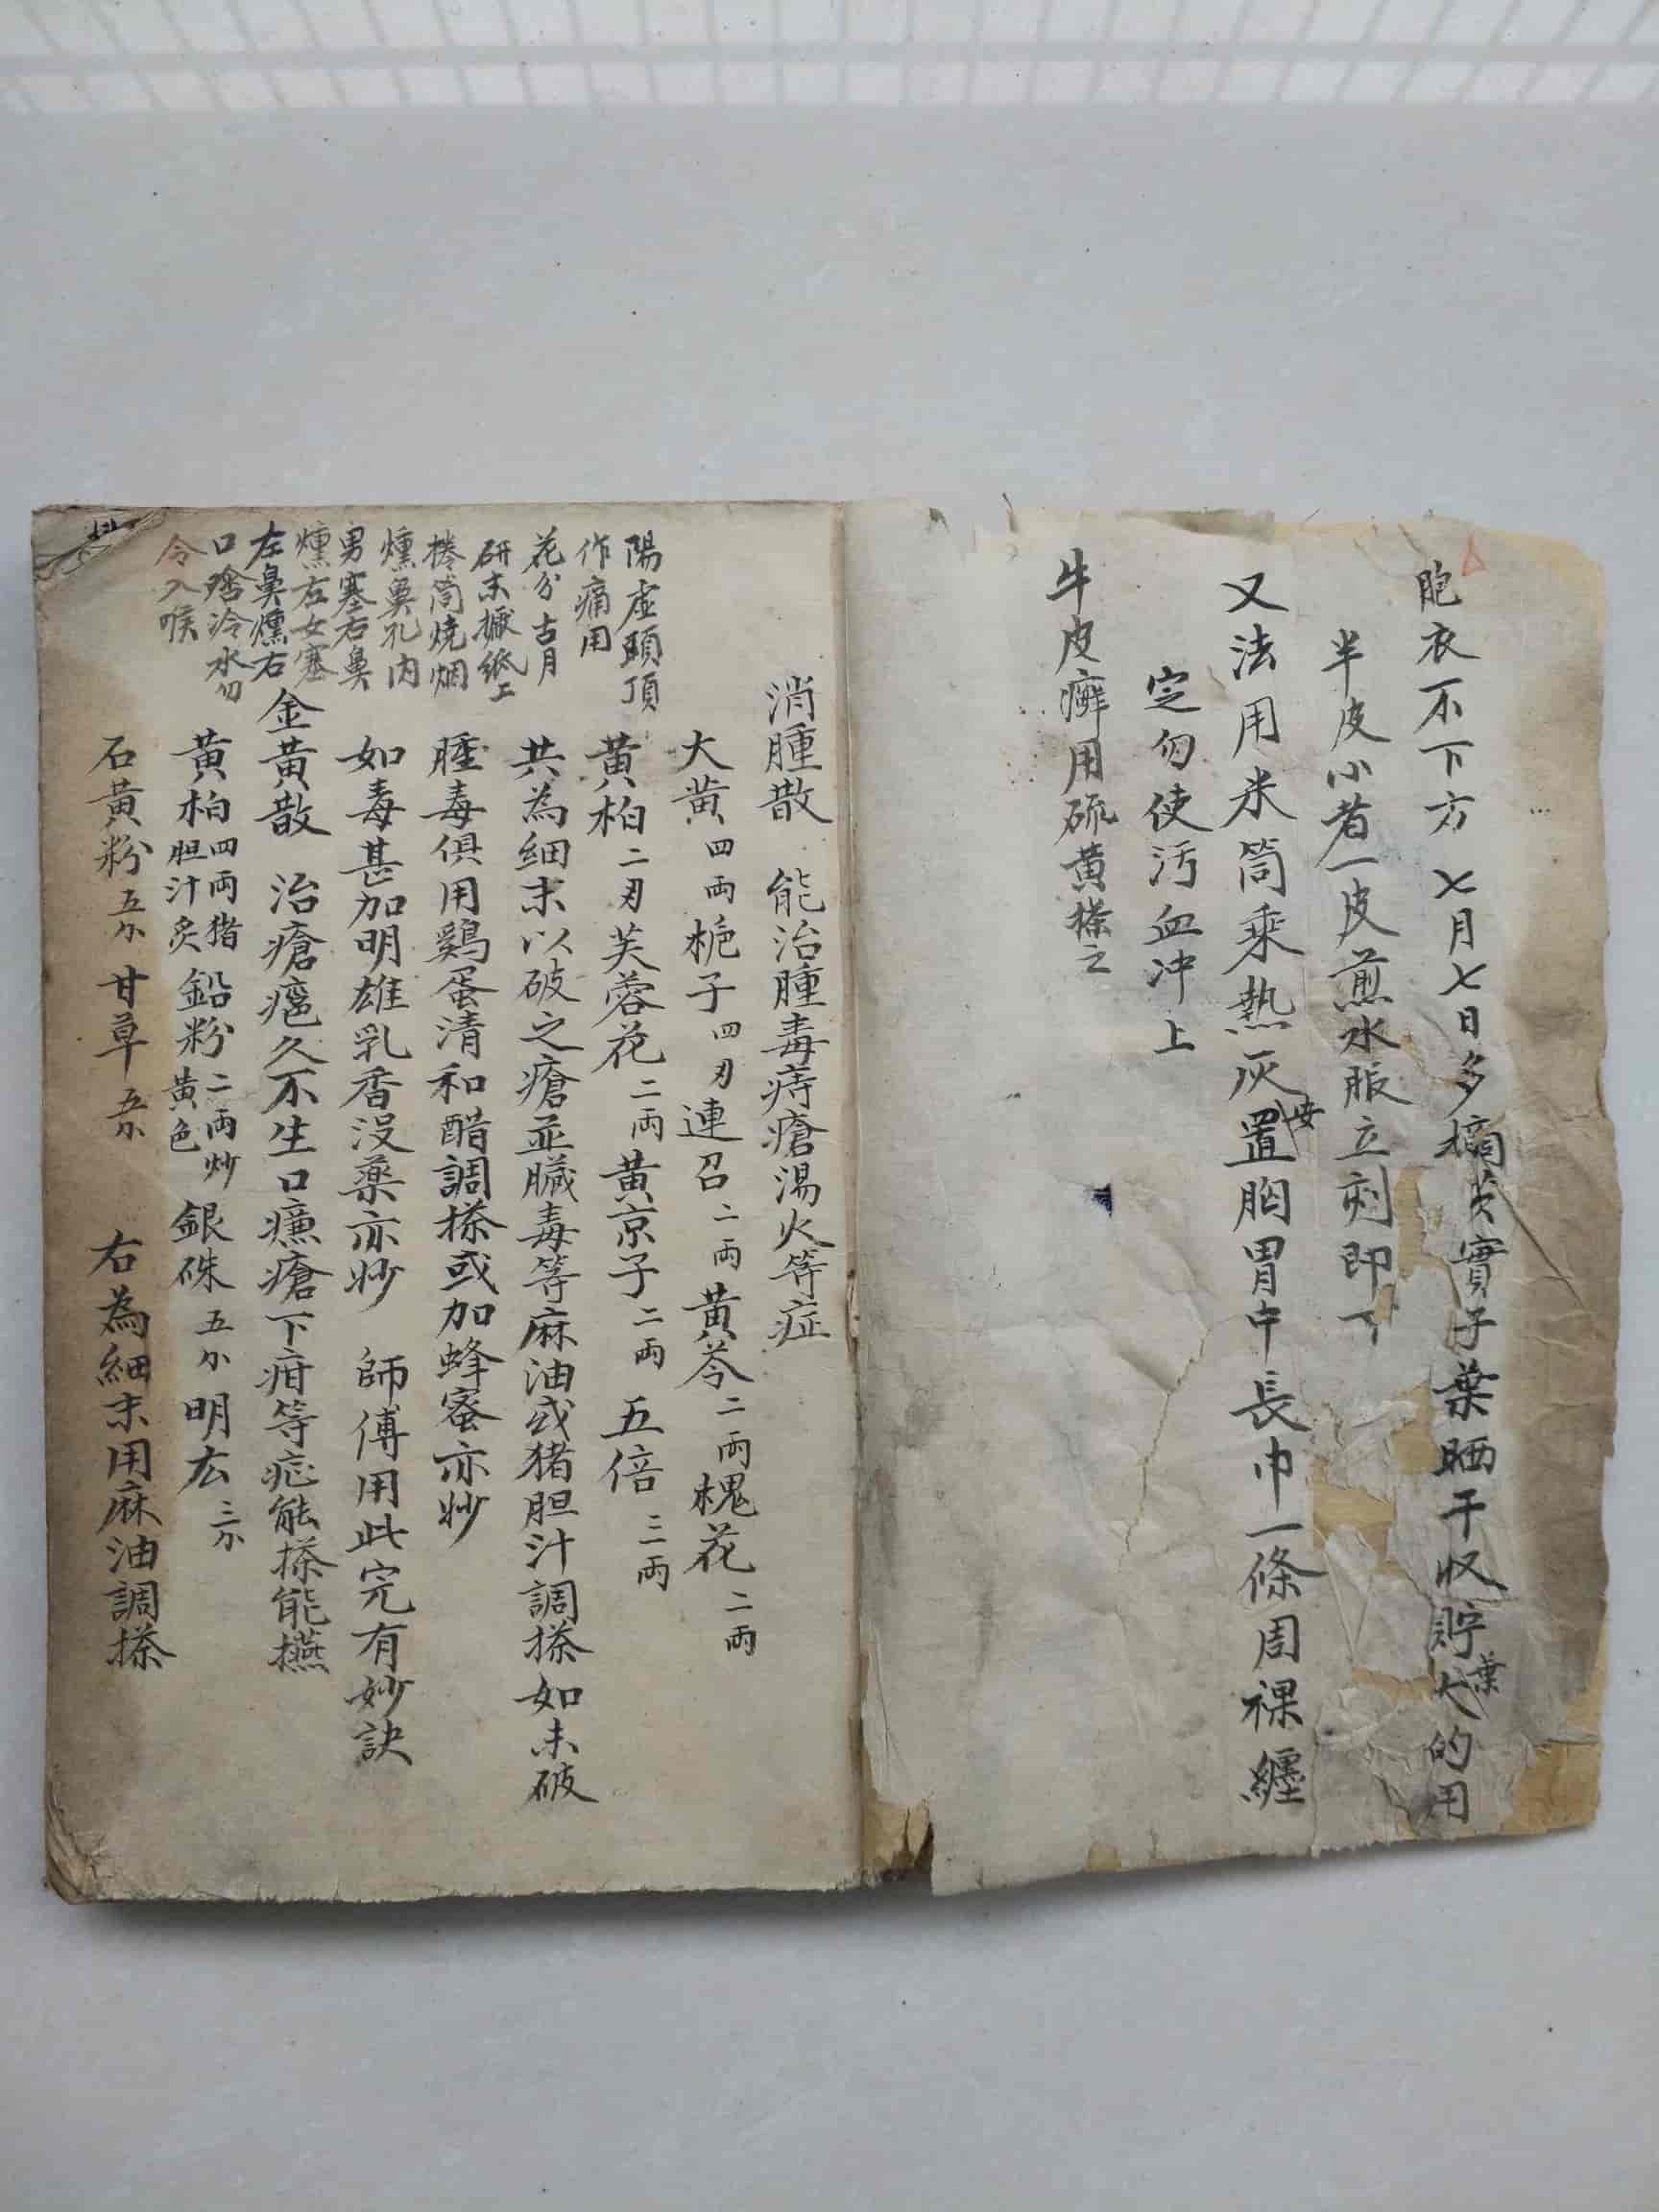 胞衣不下方 七月七日多摘芡實子葉晒干收貯大葉的用
半皮小者一皮煎水服立刻即下
又法用米筒乘熱灰置安胸胃中長巾一條周裸纏
定勿使污血冲上
牛皮癬用硫黄搽之
消腫散 能治腫毒痔瘡湯火等症
大黄四両梔子四刃連召二両黄芩二両槐花二両
黄柏二刃芙蓉花二両黄京子二両五倍三両
共為細末以破之瘡並臟毒等麻油或猪胆汁調搽如未破
腫毒俱用鷄蛋清和醋調搽或加蜂蜜亦妙
如毒甚加明雄乳香没藥亦妙 師傅用此完有妙訣
金黄散 治瘡疤久不生口臁瘡下疳等症能搽能
黄柏四両猪胆汁炙鉛粉二両炒黄色銀硃五分明玄三分
石黄粉五分甘草五分 右為細末用麻油調搽
陽虚頭頂
作痛用
花分古月
研末攤紙上
捲筒燒烟
燻鼻孔内
男塞右鼻
燻左女塞
左鼻燻右
口含冷水勿
令入喉